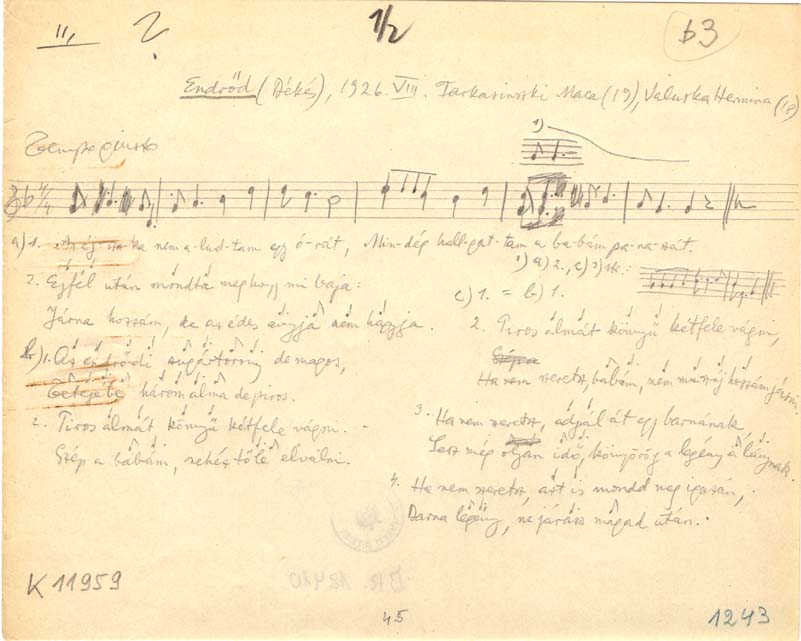 II, ? 1/2 b3
Endrőd (Békés), 1926. VIII. Tarkasinszki Maca (19), Valuska Hermina (18)
1)
Tempo giusto
a) 1. Az éj szaka nem a-lud-tam egy ó-rát, Min-dég hall-gat-tam a ba-bám pa-na-szát.
1) a) 2., c) 3) str.:
2. Éjfél után mondta meg hogy mi baja:
c) 1. = b) 1.
Járna hozzám, de az édes anyja nem hagyja.
2. Piros almát könnyű kétfele vágni,
b) 1. Az endrődi sugártorony de magos,
Szépa
Ha nem szeretsz, babám, nem muszáj hozzám járni.
Tetejébe három alma de piros.
3. Ha nem szeretsz, adjál át egy barnának,
2. Piros almát könnyű kétfele vágni.
Lesz még olyan idő, könyörög a legény a lánynak.
Szép a babám, nehéz tőle elválni.
4. Ha nem szeretsz, azt is mondd meg igazán,
Barna legény, ne járász magad után.
BR. 12410
K 11959
45
1243